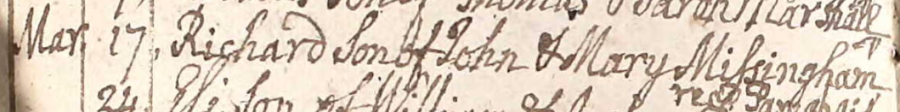 Thomas & Sarah Marshall
Mar. 17. Richard Son of John & Mary Missingham
24. Son of William &